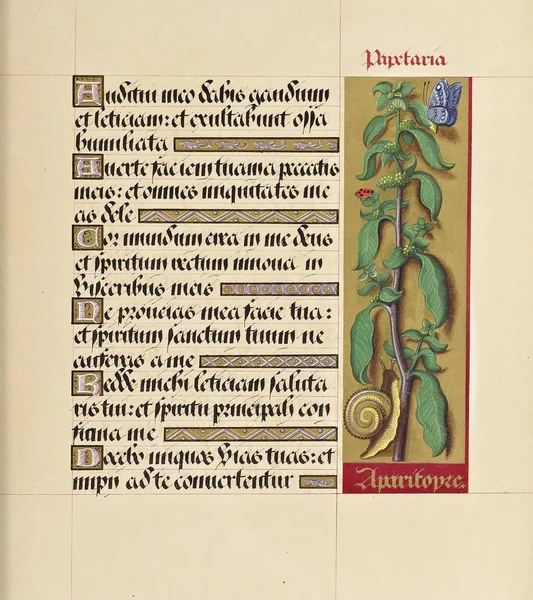 Paretaria
Auditui meo dabis gaudium
et leticiam: et exultabunt ossa
humiliata
Auerte faciem tuam a peccatis
meis: et omnes iniquitates me
as dele
Cor mundum crea in me deus
et spiritum rectum innoua in
visceribus meis
Ne proiicias me a facie tua:
et spiritum sanctum tuum ne
auferas a me
Redde michi leticiam saluta
ris tui: et spiritu principali con
firma me
Docebo iniquos vias tuas: et
impii ad te conuertentur
Aparitoyre.